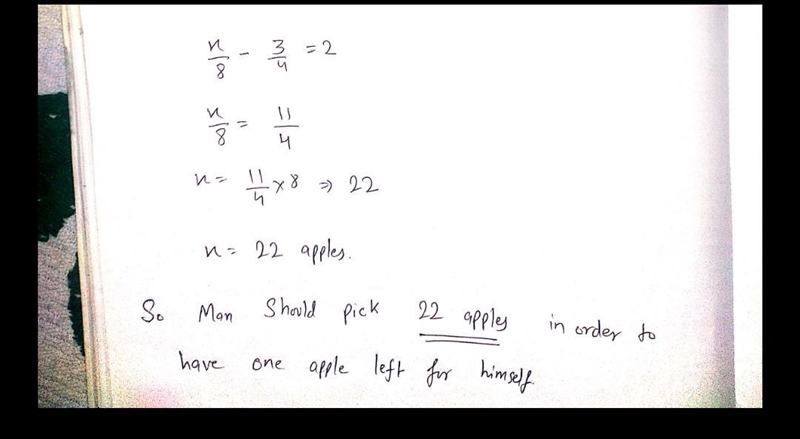 x/8 - 3/4 = 2
x/8 = 11/4
x = 11/4 x 8 ⇒ 22
x = 22 apples.
So Man Should pick 22 apples in order to
have one apple left for himself.